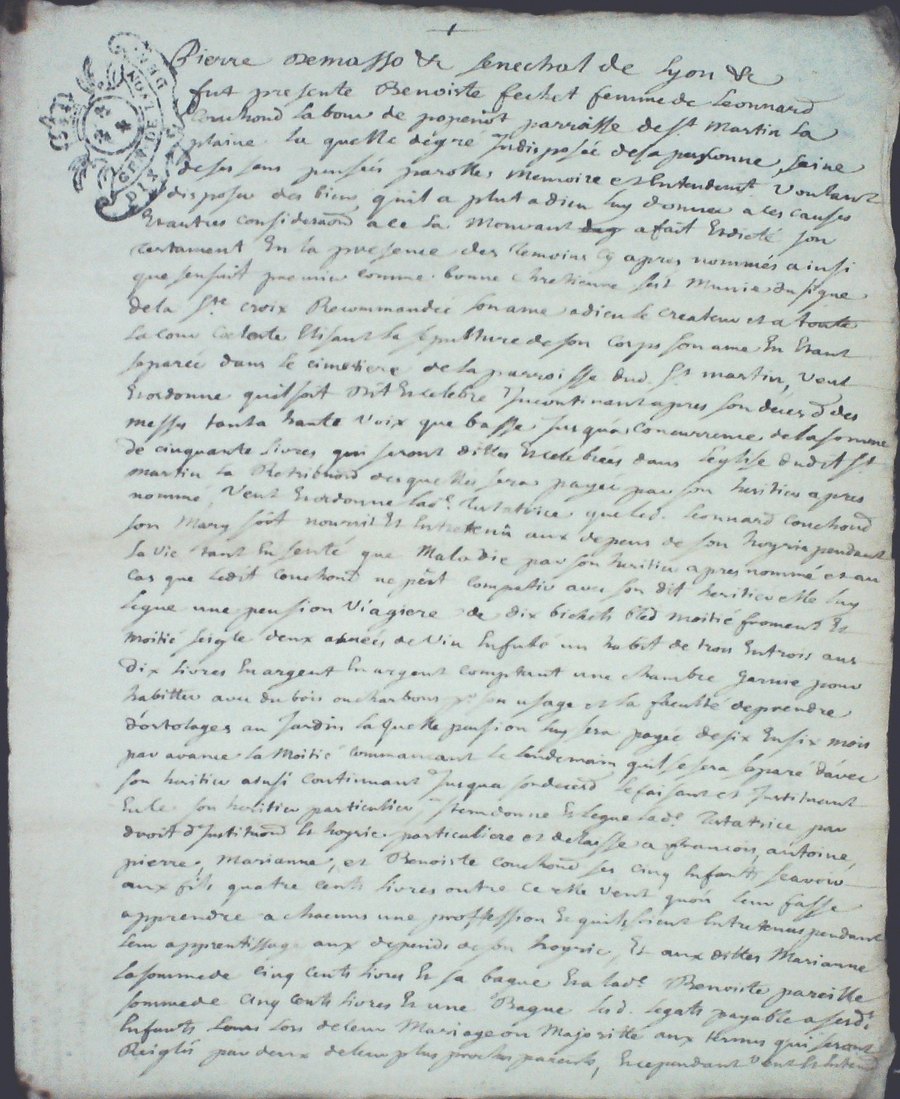 GEN. DE LYON
DEUX SOLS
DIX
Pierre Demasso &c senechal de Lyon &c
fut presente Benoiste fechet femme de Leonnard
Couchond labour de popenot parroisse de st martin La
plaine la quelle degré Indisposée de sa personne, saine
de ses sens pensées parolles memoire et Entendemt. voulant
disposer des biens quil a plut a dieu luy donner a les causes
Et autres considerãond a ce la mouvant a fait Et dicté son
testament En la presence des temoins cy apres nommés ainsi
que sensuit premier comme bonne chretienne sest munie du signe
de la Ste croix Recommandée son ame a dieu le createur et a toute
la cour celeste Elisant la sepulture de son corps son ame En Etant
separée dans le cimetiere de la parroisse dud. St martin, veut
Et ordonne quil soit dit Et celebré Incontinant apres son déced des
messes tant a haute voix que basse jusqua concurrence de la somme
de cinquante livres qui seront dittes Et celebrées dans leglise dudit St
martin la Retribuõnd desquelles sera payée par son heritier apres
nommé, veut Et ordonne lade. testatrice que led. Leonnard couchond
son mary soit nourrit Et Entretenü aux depens de son hoyrie pendant
sa vie tant En senté que maladie par son heritier apres nommé et au
cas que ledit couchond ne pût compatir avec son dit heritier elle luy
legue une pension viagiere de dix bichets bled moitié froment Et
moitié seigle deux année de vin Enfuté un habit de trois En trois ans
dix livres En argent En argent comptant une chambre garnie pour
habitter avec du bois ou charbons pr son usage et la faculté de prendre
d'ortolages au jardin laquelle pension luy sera payée de six En six mois
par avance la moitié commançant le landemain quil se sera separé davec
son heritier ainsi continuant jusqua son deced le faisant et Instituant
En ce son heritier particulier, Item donne Et legue lade. testatrice par
droit d'Instituõnd Et hoyrie particuliere et delaisse a francois, antoine,
pierre, marianne, et Benoiste couchond ses cinq Enfants scavoir
aux fils quatre cents livres outre ce elle veut quon leur fasse
apprendre a chacuns une proffession Et quils soient Entretenus pendant
leur apprentissage aux depends de son hoyrie, Et aux dittes Marianne
la somme de cinq cents livres Et sa bague Et a lade. Benoiste pareille
somme de cinq cents livres Et une Bague lesd. legats payable a sesds.
Enfants lors de leur mariage ou majoritte aux termes qui seront
Reiglés par deux de leur plus proches parents, Et cependant veut Et Entend